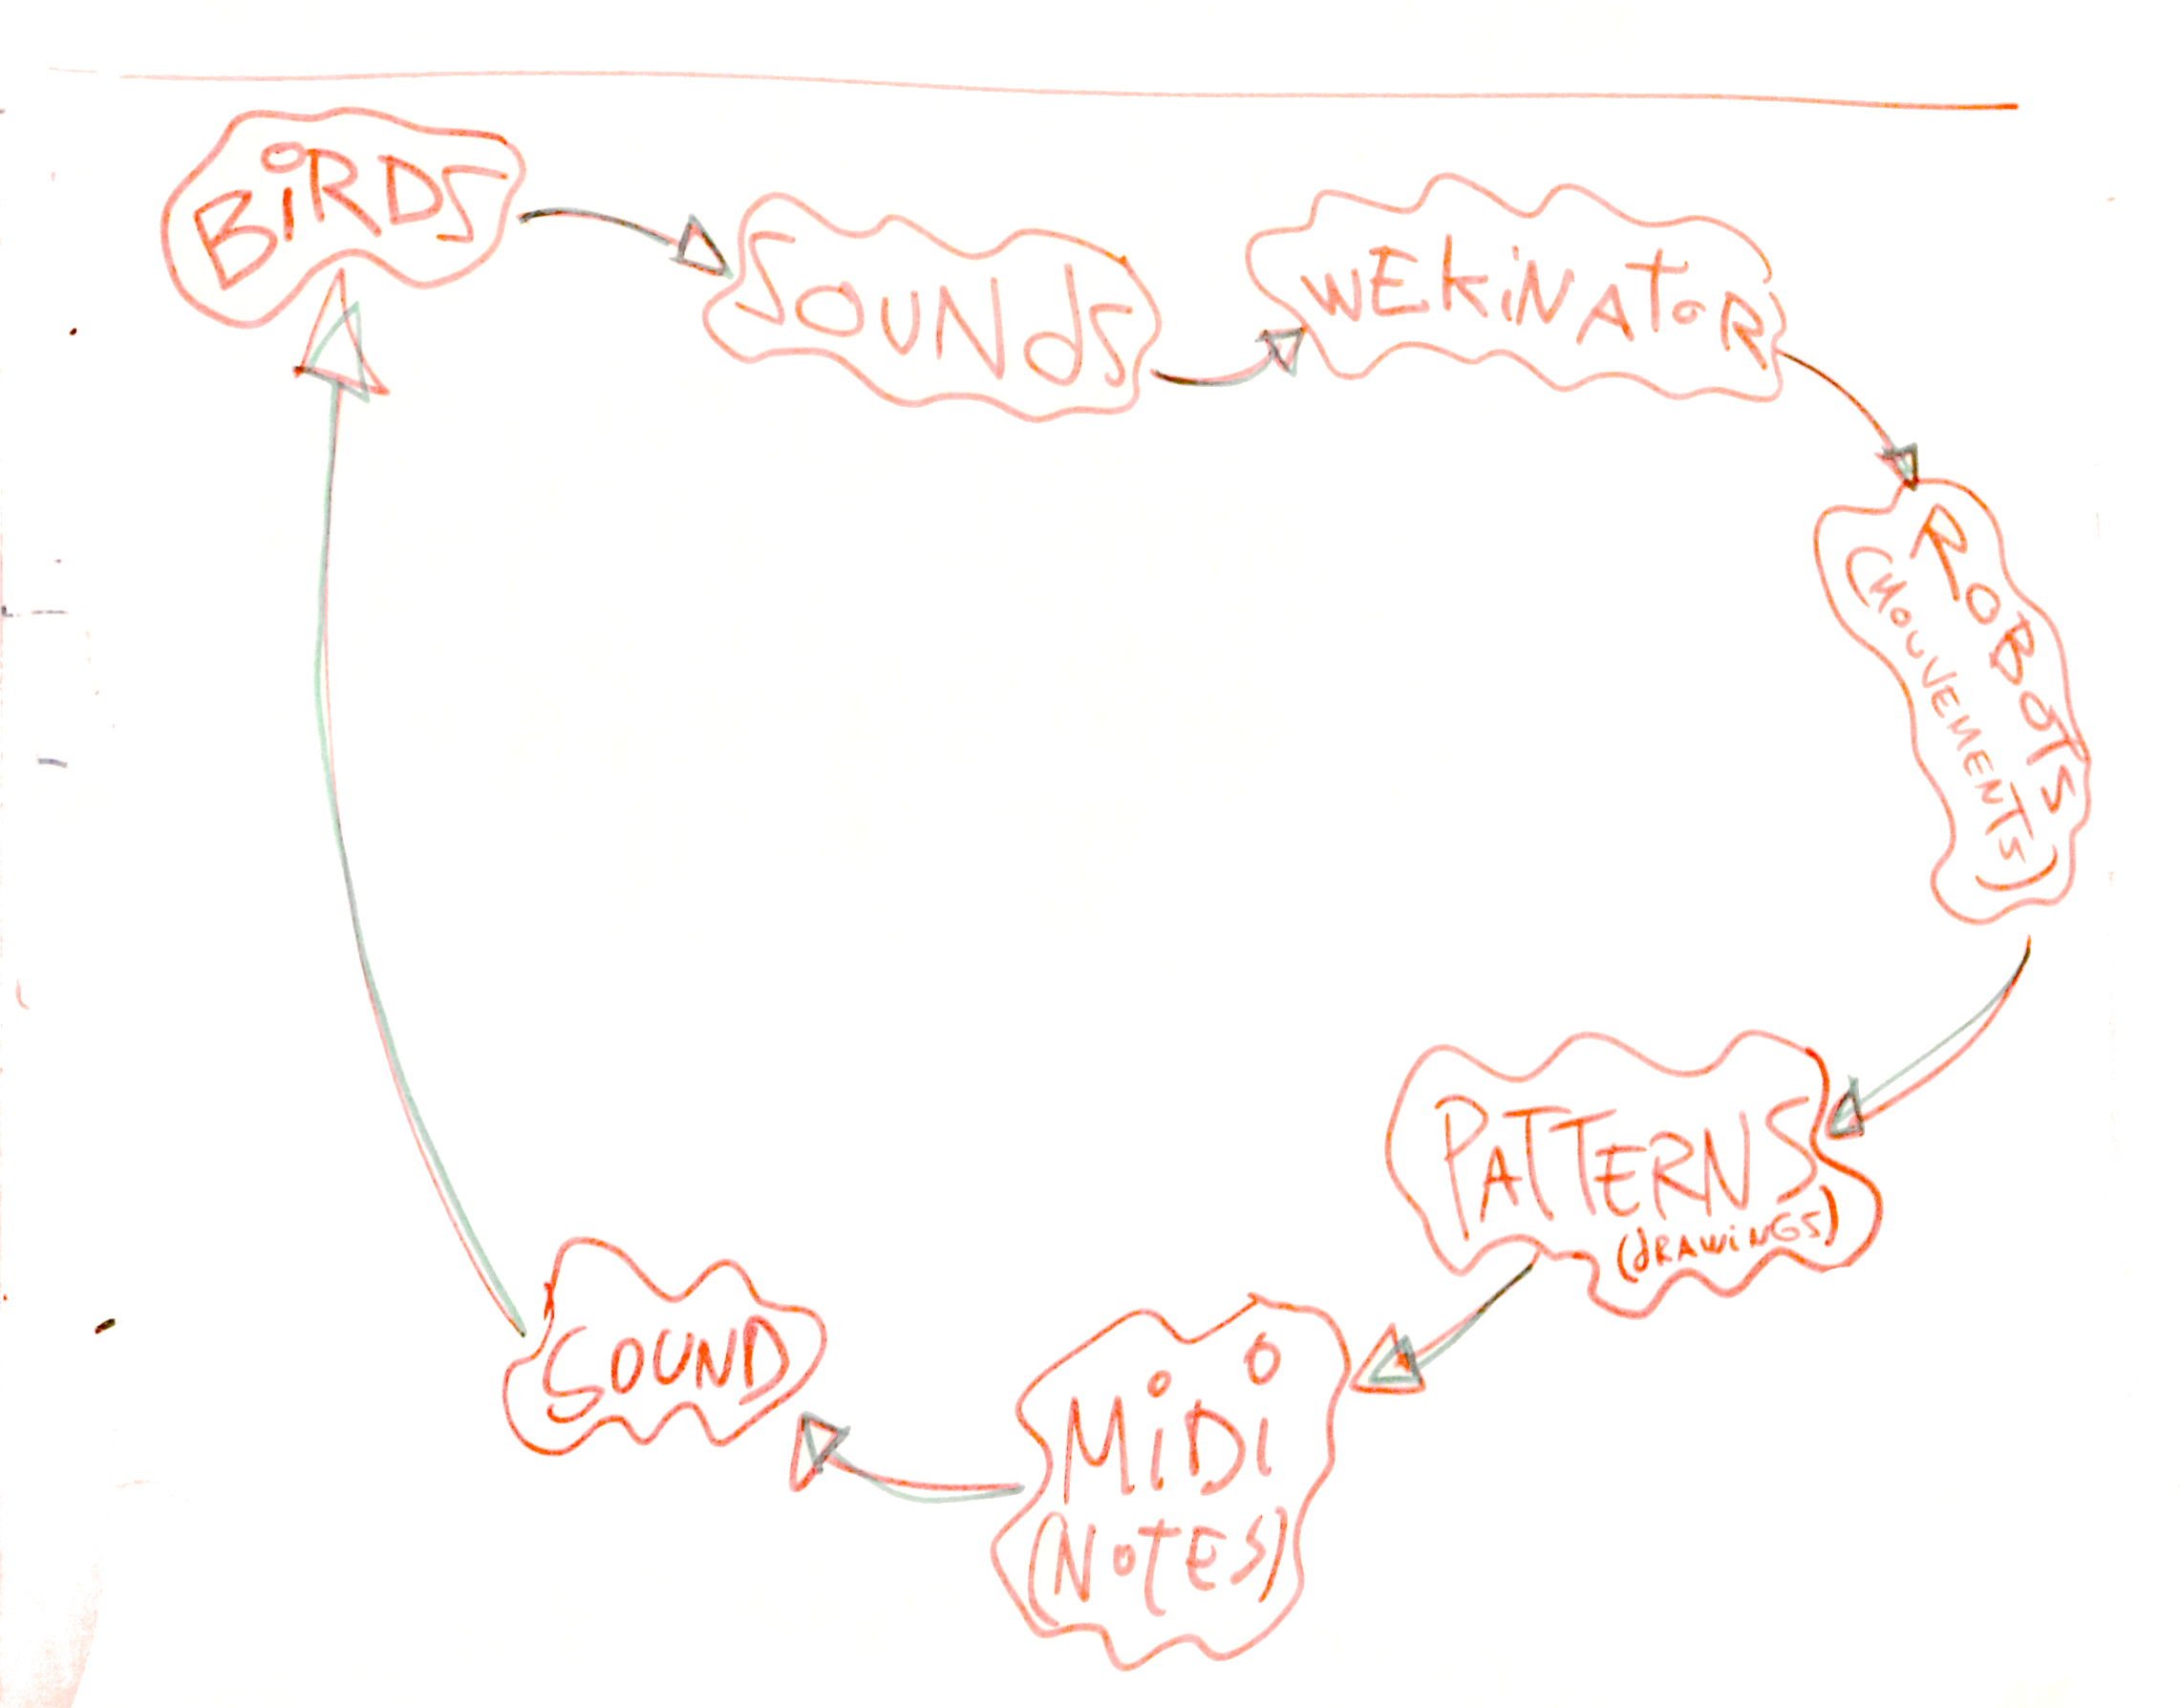 BiRDS
SOUNdS
WEKiNAToR
ROBOTS
(MOUVEMENTS)
PATTERNS
(dRAWiNGS)
MiDi
(NOTES)
SOUND